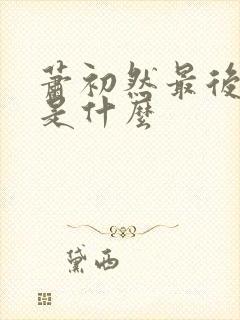 蕭初然最後
是什麼
黛西